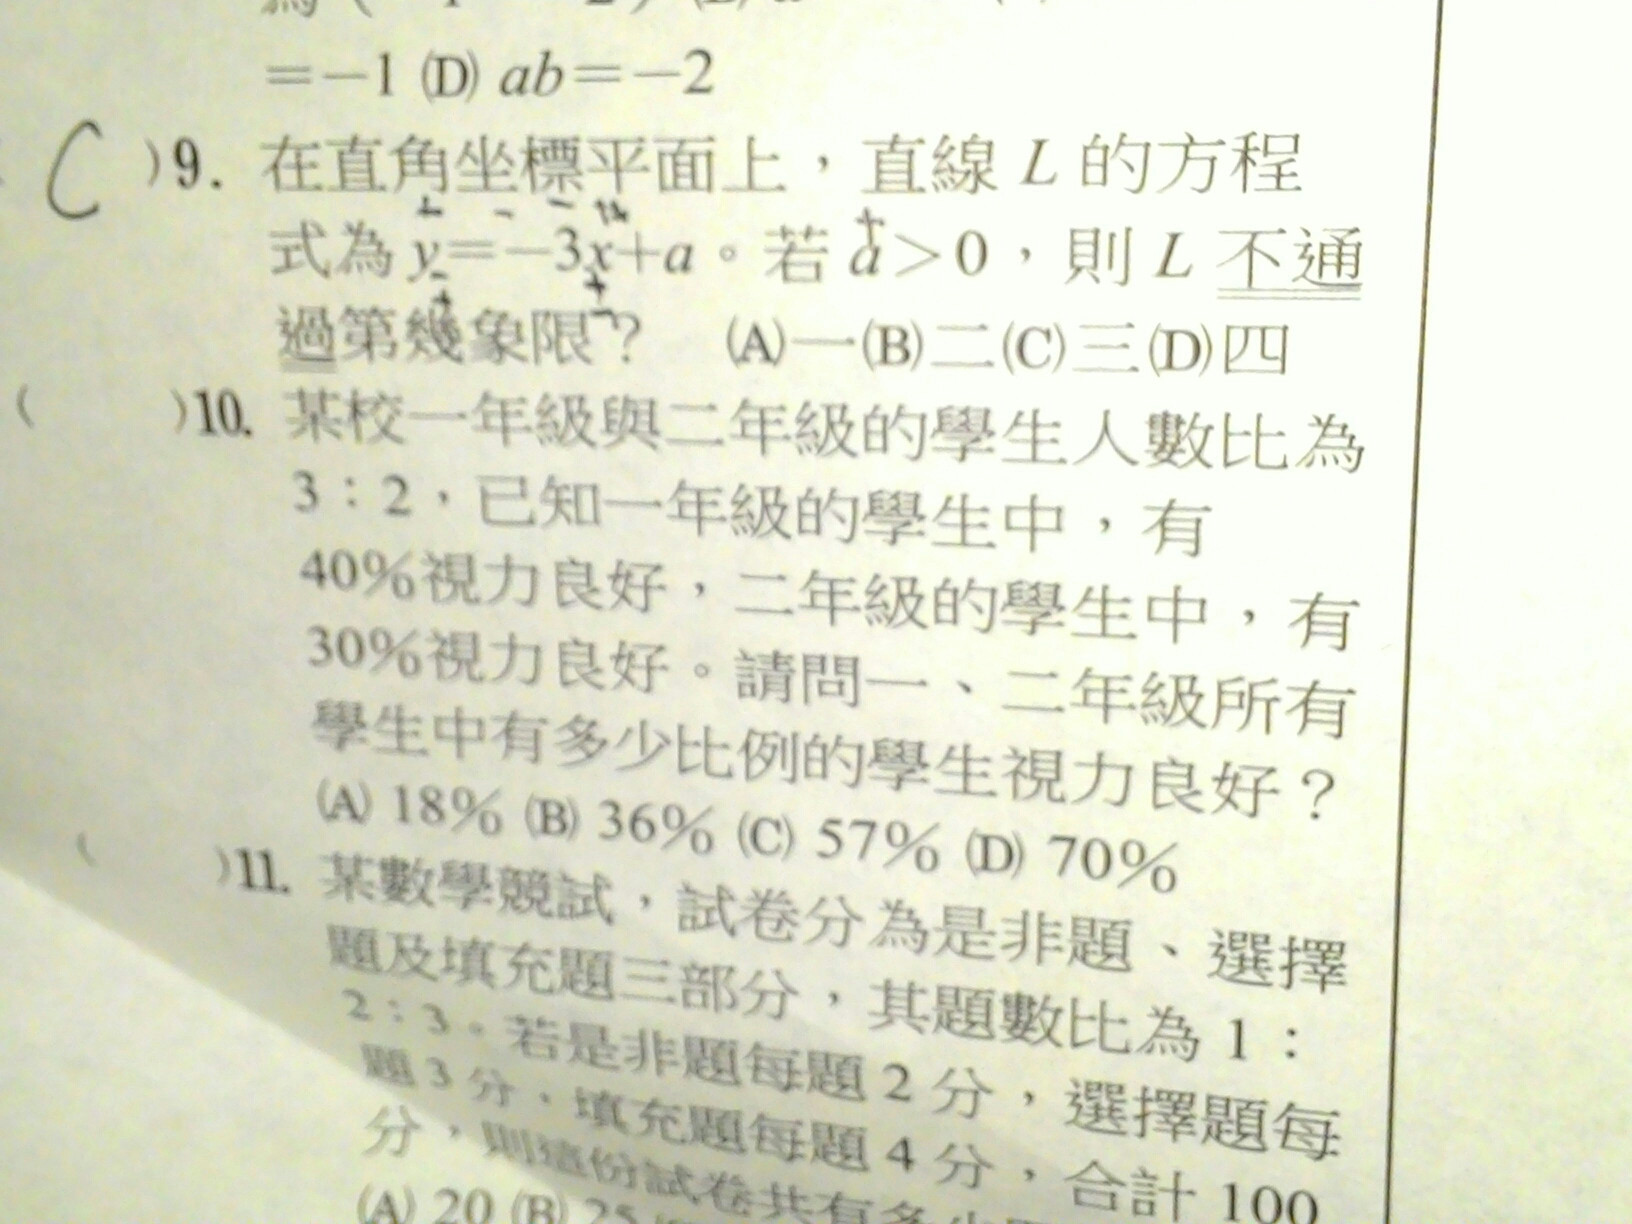 =−1 (D) ab=−2
C )9. 在直角坐標平面上，直線 L 的方程
式為 y=−3x+a。若 a>0，則 L 不通
過第幾象限？ (A)一(B)二(C)三(D)四
( )10. 某校一年級與二年級的學生人數比為
3：2，已知一年級的學生中，有
40%視力良好，二年級的學生中，有
30%視力良好。請問一、二年級所有
學生中有多少比例的學生視力良好？
(A) 18% (B) 36% (C) 57% (D) 70%
( )11. 某數學競試，試卷分為是非題、選擇
題及填充題三部分，其題數比為 1：
2：3。若是非題每題 2 分，選擇題每
題 3 分，填充題每題 4 分，合計 100
分，則這份試卷共有多少
(A) 20 (B) 25